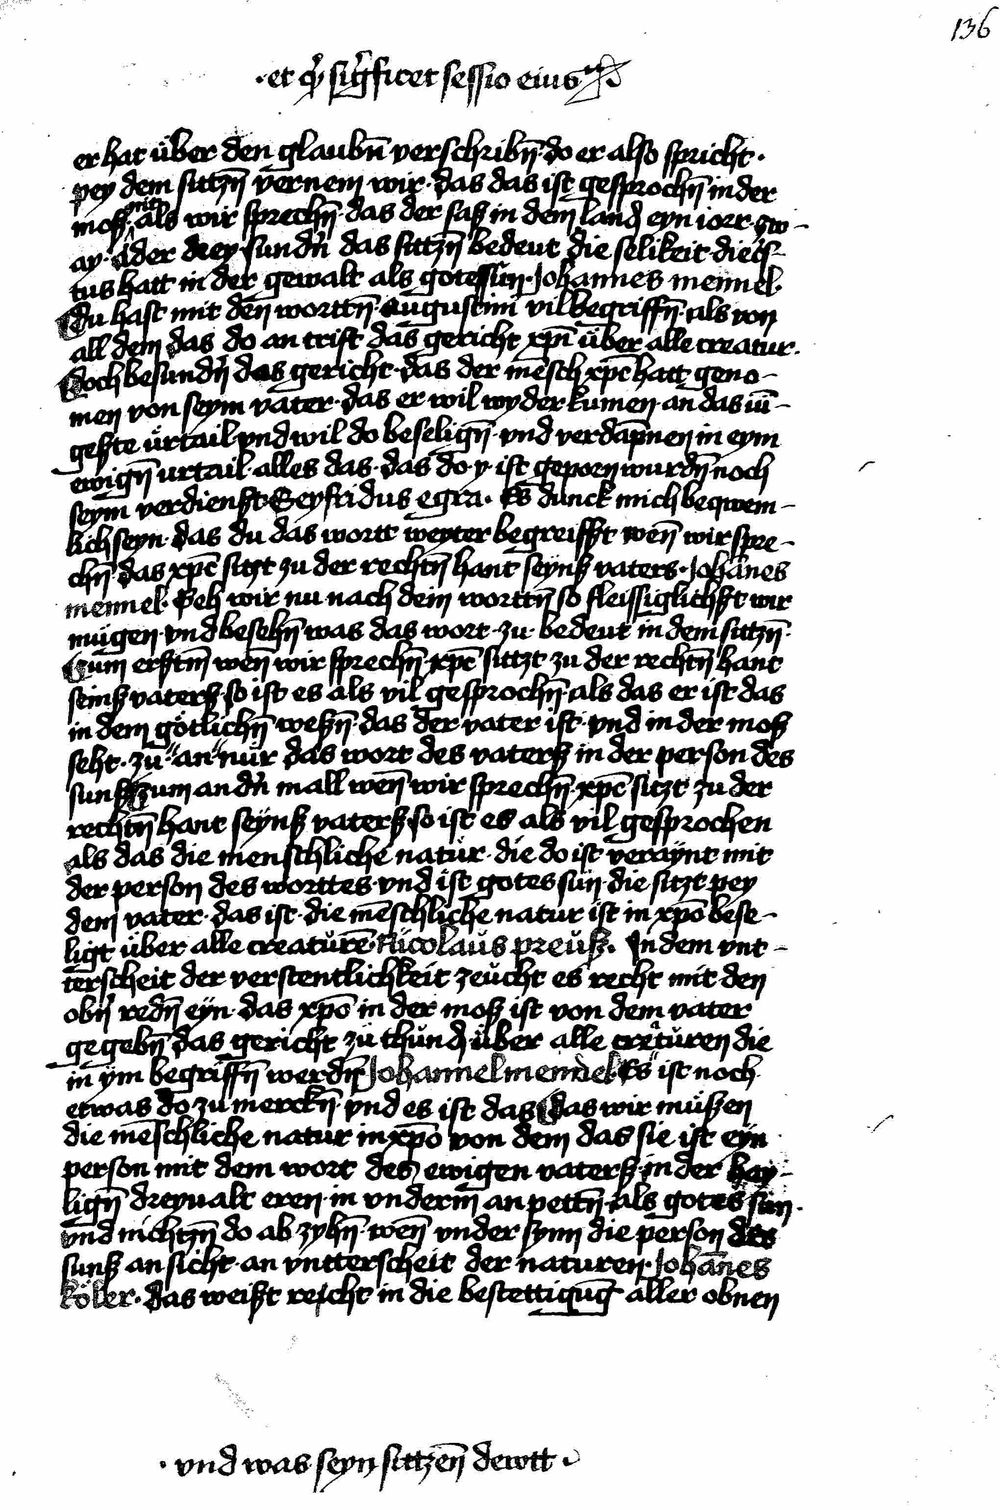 136
·et qͥd sigͥficet sessio eius
er hat über den glaubn̄ verschribn̄· do er also spricht·
pey dem sittzn̄ vernem wir· das das ist gesprochn̄ in der
moß· nit als wir sprechn̄· das der saß in dem land eyn iorr· zw-
ay· ader drey· sundn̄ das sittzn̄ bedeut die selikeit· die cͥs-
tus hatt in der gewalt als gotes sun· Johannes mennel·
Du hast mit den wortn̄· Augustini vil begriffn̄· als von
all dem das do an trift das gericht xpi über alle creatur·
Doch besundn̄ das gericht· das der mēsch xpc̄ hatt geno-
men von seym vater· das er wil wyder kumen an das iū-
geste ürtail vnd wil do beselign̄· vnd verdāpnen in eym
ewign̄ urtail· alles das· das do· y· ist geporn wurdn̄ noch
seym verdienst· Seyfridus egra· Es dunck mich beqwem-
lich seyn· das du das wortt weyter begreiffst wen̄ wir spre-
chn̄ das xpc̄ sitzt zu der rechtn̄ hant seynß vaters· Johānes
mennel· Seh wir nu nach dem worttn̄ so fleissiglichst wir
mügen· vnd besehn̄ was das wort· zu· bedeut in dem sittzn̄·
Cum erstn̄ wen̄ wir sprechn̄· xpc̄ sittzt zu der rechtn̄ hant
seinß vaterß· so ist es als vil gesprochn̄· als das er ist das
in dem götlichn̄ weßn̄· das der vater ist· vnd in der moß
seht· zu "an" nür das wort des vaterß in der person des
sunß Zum andn̄ mall wen̄ wir sprechn̄ xpc̄ sitzt zu der
rechtn̄ hant seynß vaterß· so ist es als vil gesprochen
als das die menschliche natür· die do ist veraynt mit
der person des worttes· vnd ist gotes sün· die sitzt pey
dem vater· das ist· die mēschliche natur ist in xpō bese-
ligt über alle creatürē· Nicolaus preuß· In dem vnt-
terscheit der verstentlichkeit zeücht es recht mit den
obn̄ redn̄ eyn· das xpō in der moß ist von dem vater
gegebn̄ das gericht zu thünd über alle creatüren die
in ym begriffn̄ werdn̄ Johannel mennel Es ist noch
etwas do zu merckn̄ vnd es ist das Das wir müßen
die mēschliche natur in xpō von dem das sie ist eyn
person mit dem wort des ewigen vaterß in der hay-
lign̄ dreyualt eren· in vnderm an pettn̄· als gotes sun·
vnd nichtzn̄ do ab zyhn̄· wen̄ vnder synn die person des
sunß an sicht· an vntterscheit der naturen· Johānes
köler· Das weißt reicht in die bestettigūg aller obnen
· vnd was seyn sittzen̄ dewtt ·